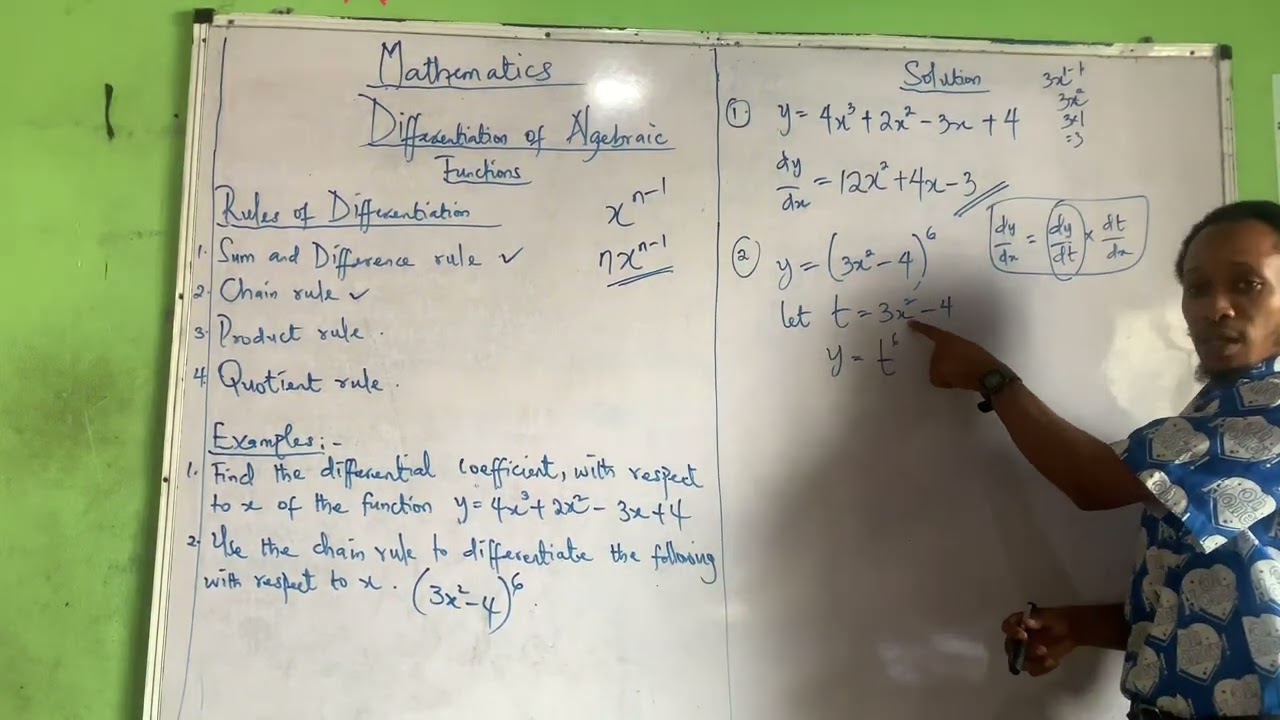 Mathematics
Differentiation of Algebraic
Functions
Rules of Differentiation
xⁿ⁻¹
1. Sum and Difference rule ✓
nxⁿ⁻¹
2. Chain rule ✓
3. Product rule.
4. Quotient rule.
Examples:-
1. Find the differential coefficient, with respect
to x of the function y=4x³+2x²-3x+4
2. Use the chain rule to differentiate the following
with respect to x. (3x²-4)⁶.
Solution
3x¹⁻¹
3x⁰
3×1
=3
① y = 4x³+2x²-3x+4
dy/dx = 12x²+4x-3
dy/dx = dy/dt × dt/dx
② y = (3x²-4)⁶
let t = 3x²-4
y = t⁶